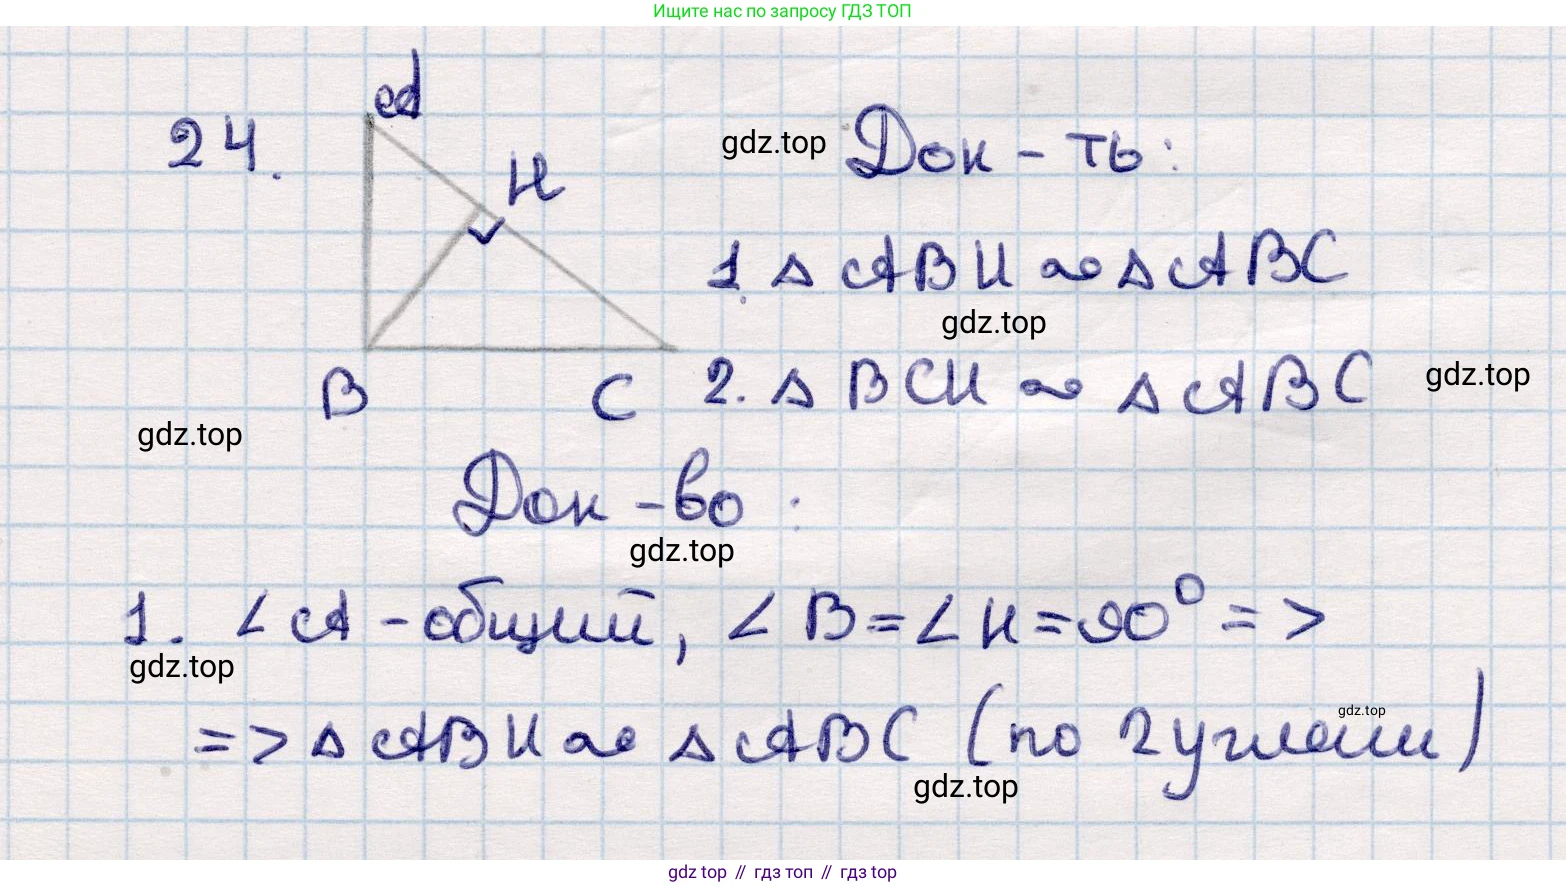 Ищите нас по запросу ГДЗ ТОП
A
24.
H
gdz.top
Док-ть:
1. ∆ ABH ~ ∆ ABC
gdz.top
B
C
2. ∆ BCH ~ ∆ ABC
gdz.top
gdz.top
Док-во:
gdz.top
1. ∠A - общий, ∠B = ∠H = 90° =>
gdz.top
=> ∆ ABH ~ ∆ ABC (по 2 углам)
gdz.top
gdz.top
gdz top // гдз топ // гдз top